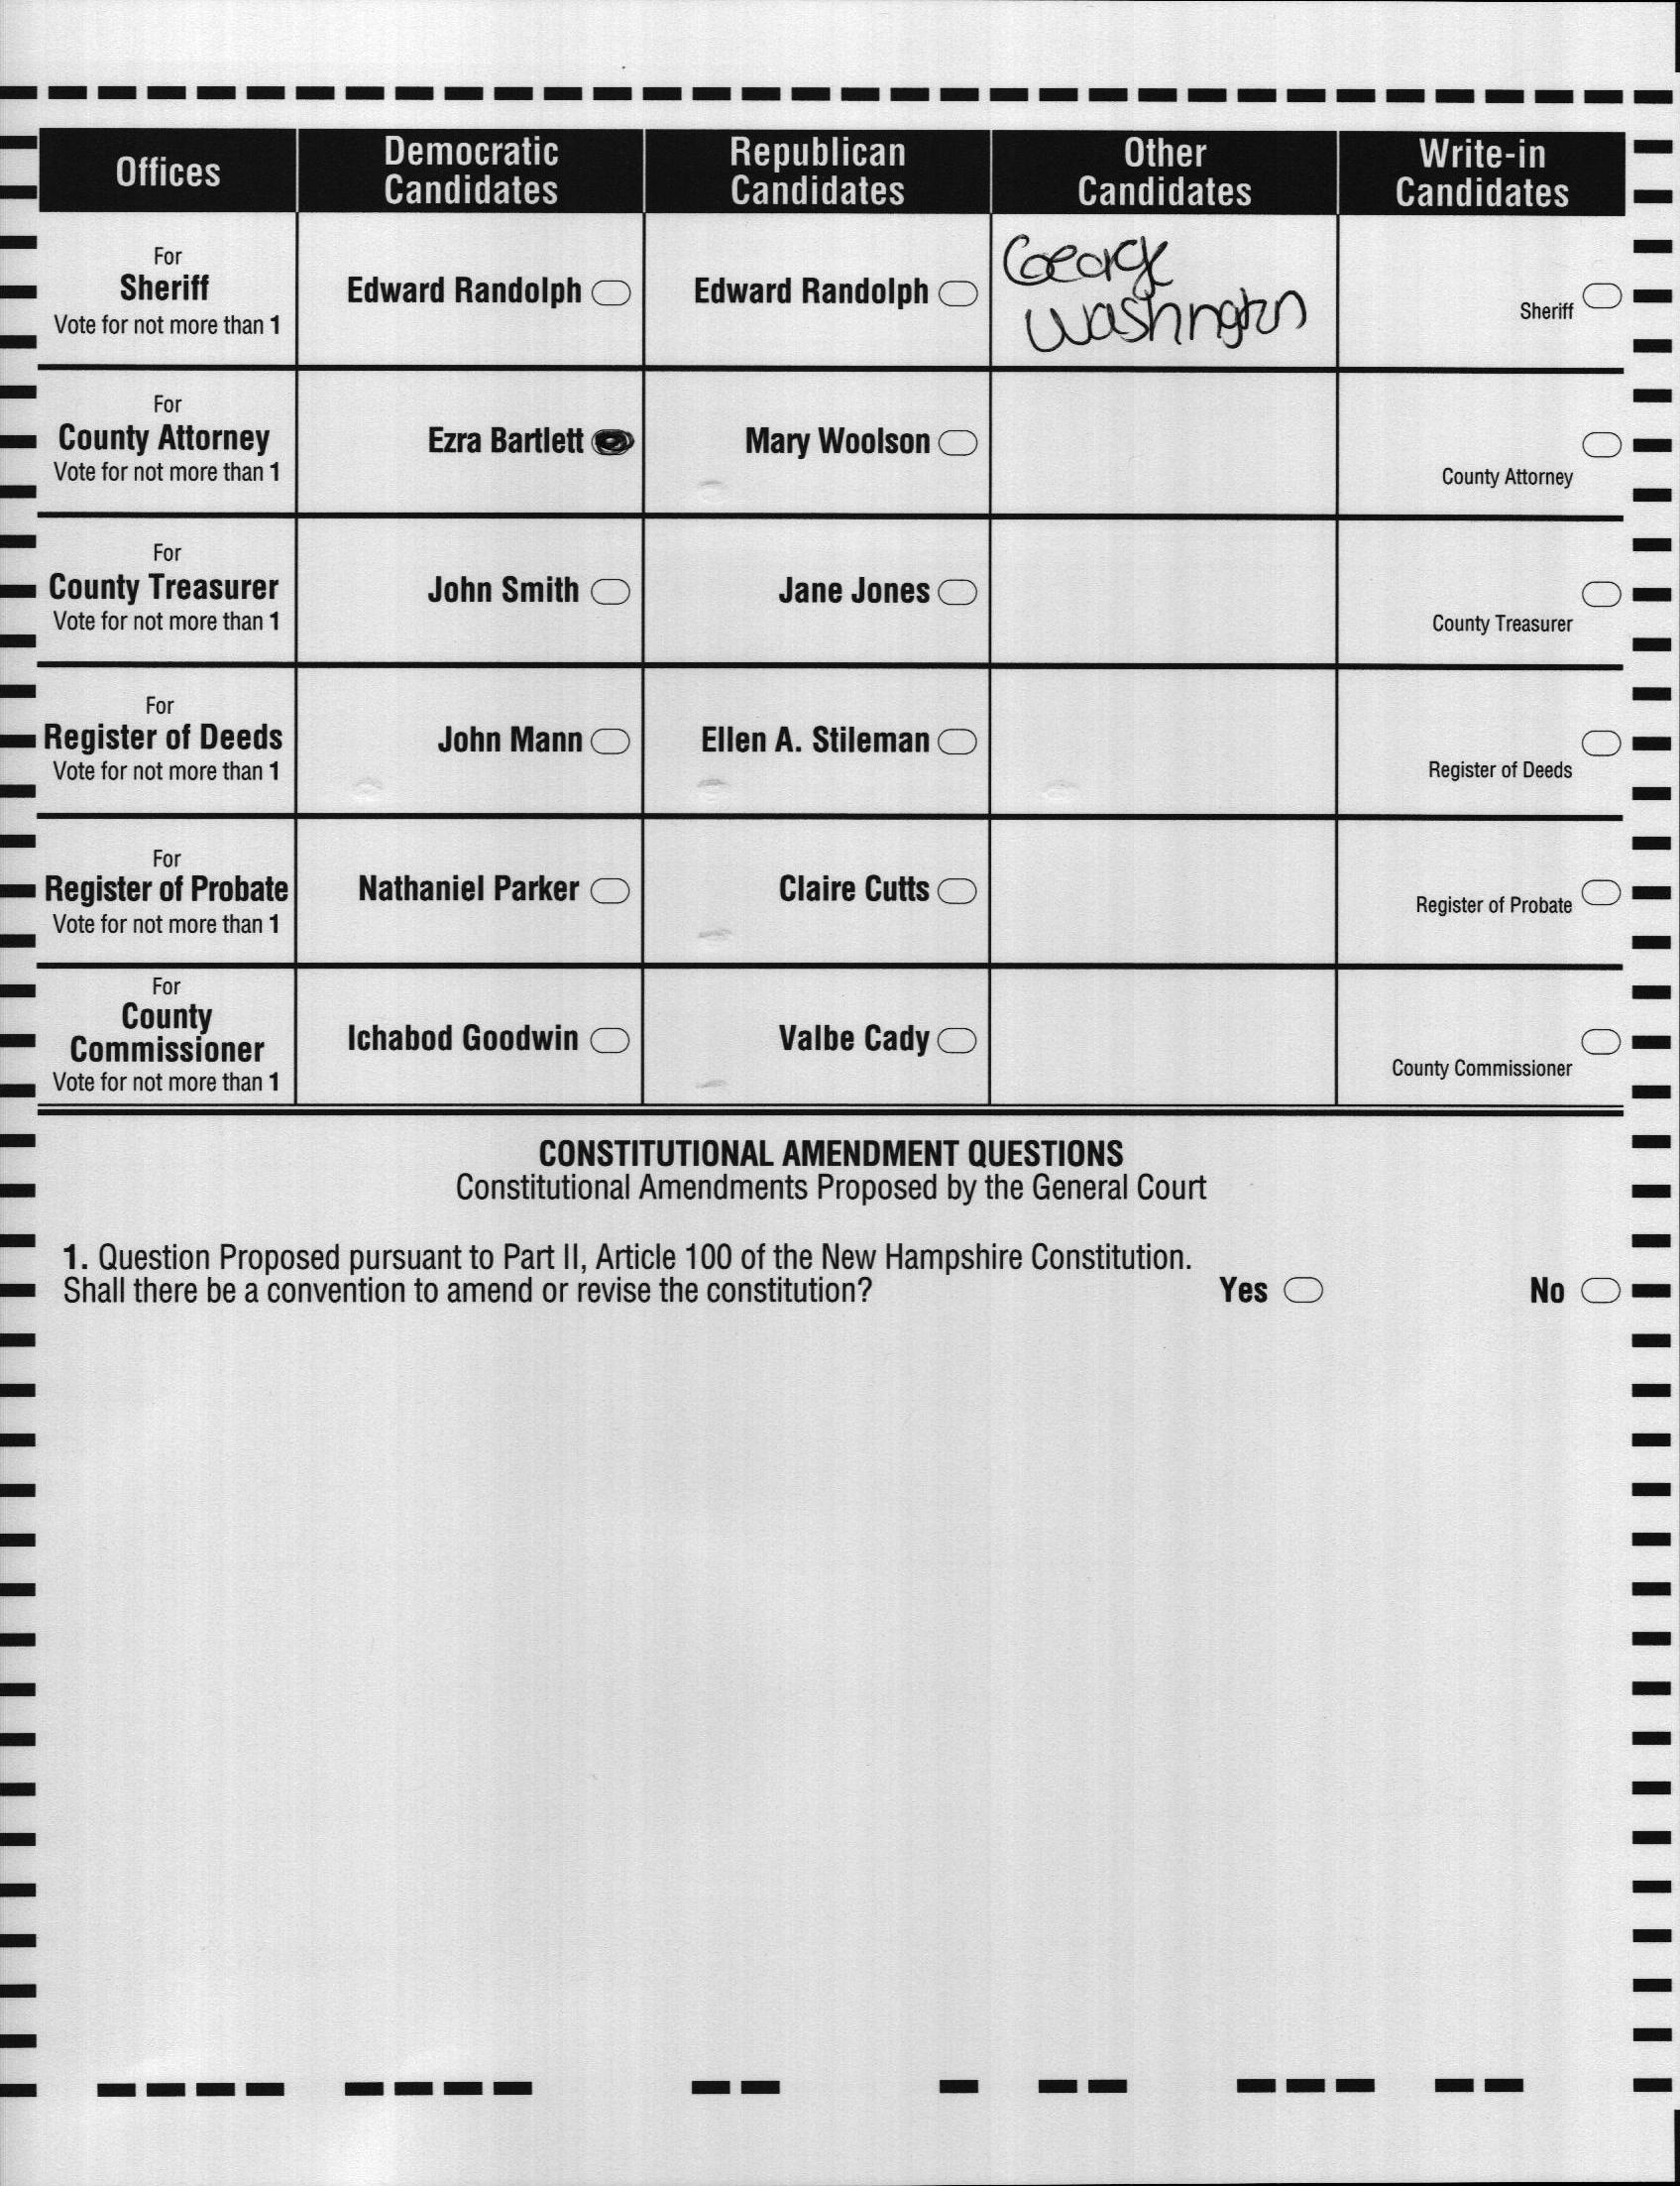 Offices
Democratic
Candidates
Republican
Candidates
Other
Candidates
Write-in
Candidates
For
Sheriff
Vote for not more than 1
Edward Randolph
Edward Randolph
George
Washington
Sheriff
For
County Attorney
Vote for not more than 1
Ezra Bartlett
Mary Woolson
County Attorney
For
County Treasurer
Vote for not more than 1
John Smith
Jane Jones
County Treasurer
For
Register of Deeds
Vote for not more than 1
John Mann
Ellen A. Stileman
Register of Deeds
For
Register of Probate
Vote for not more than 1
Nathaniel Parker
Claire Cutts
Register of Probate
For
County
Commissioner
Vote for not more than 1
Ichabod Goodwin
Valbe Cady
County Commissioner
CONSTITUTIONAL AMENDMENT QUESTIONS
Constitutional Amendments Proposed by the General Court
1. Question Proposed pursuant to Part II, Article 100 of the New Hampshire Constitution.
Shall there be a convention to amend or revise the constitution?
Yes
No